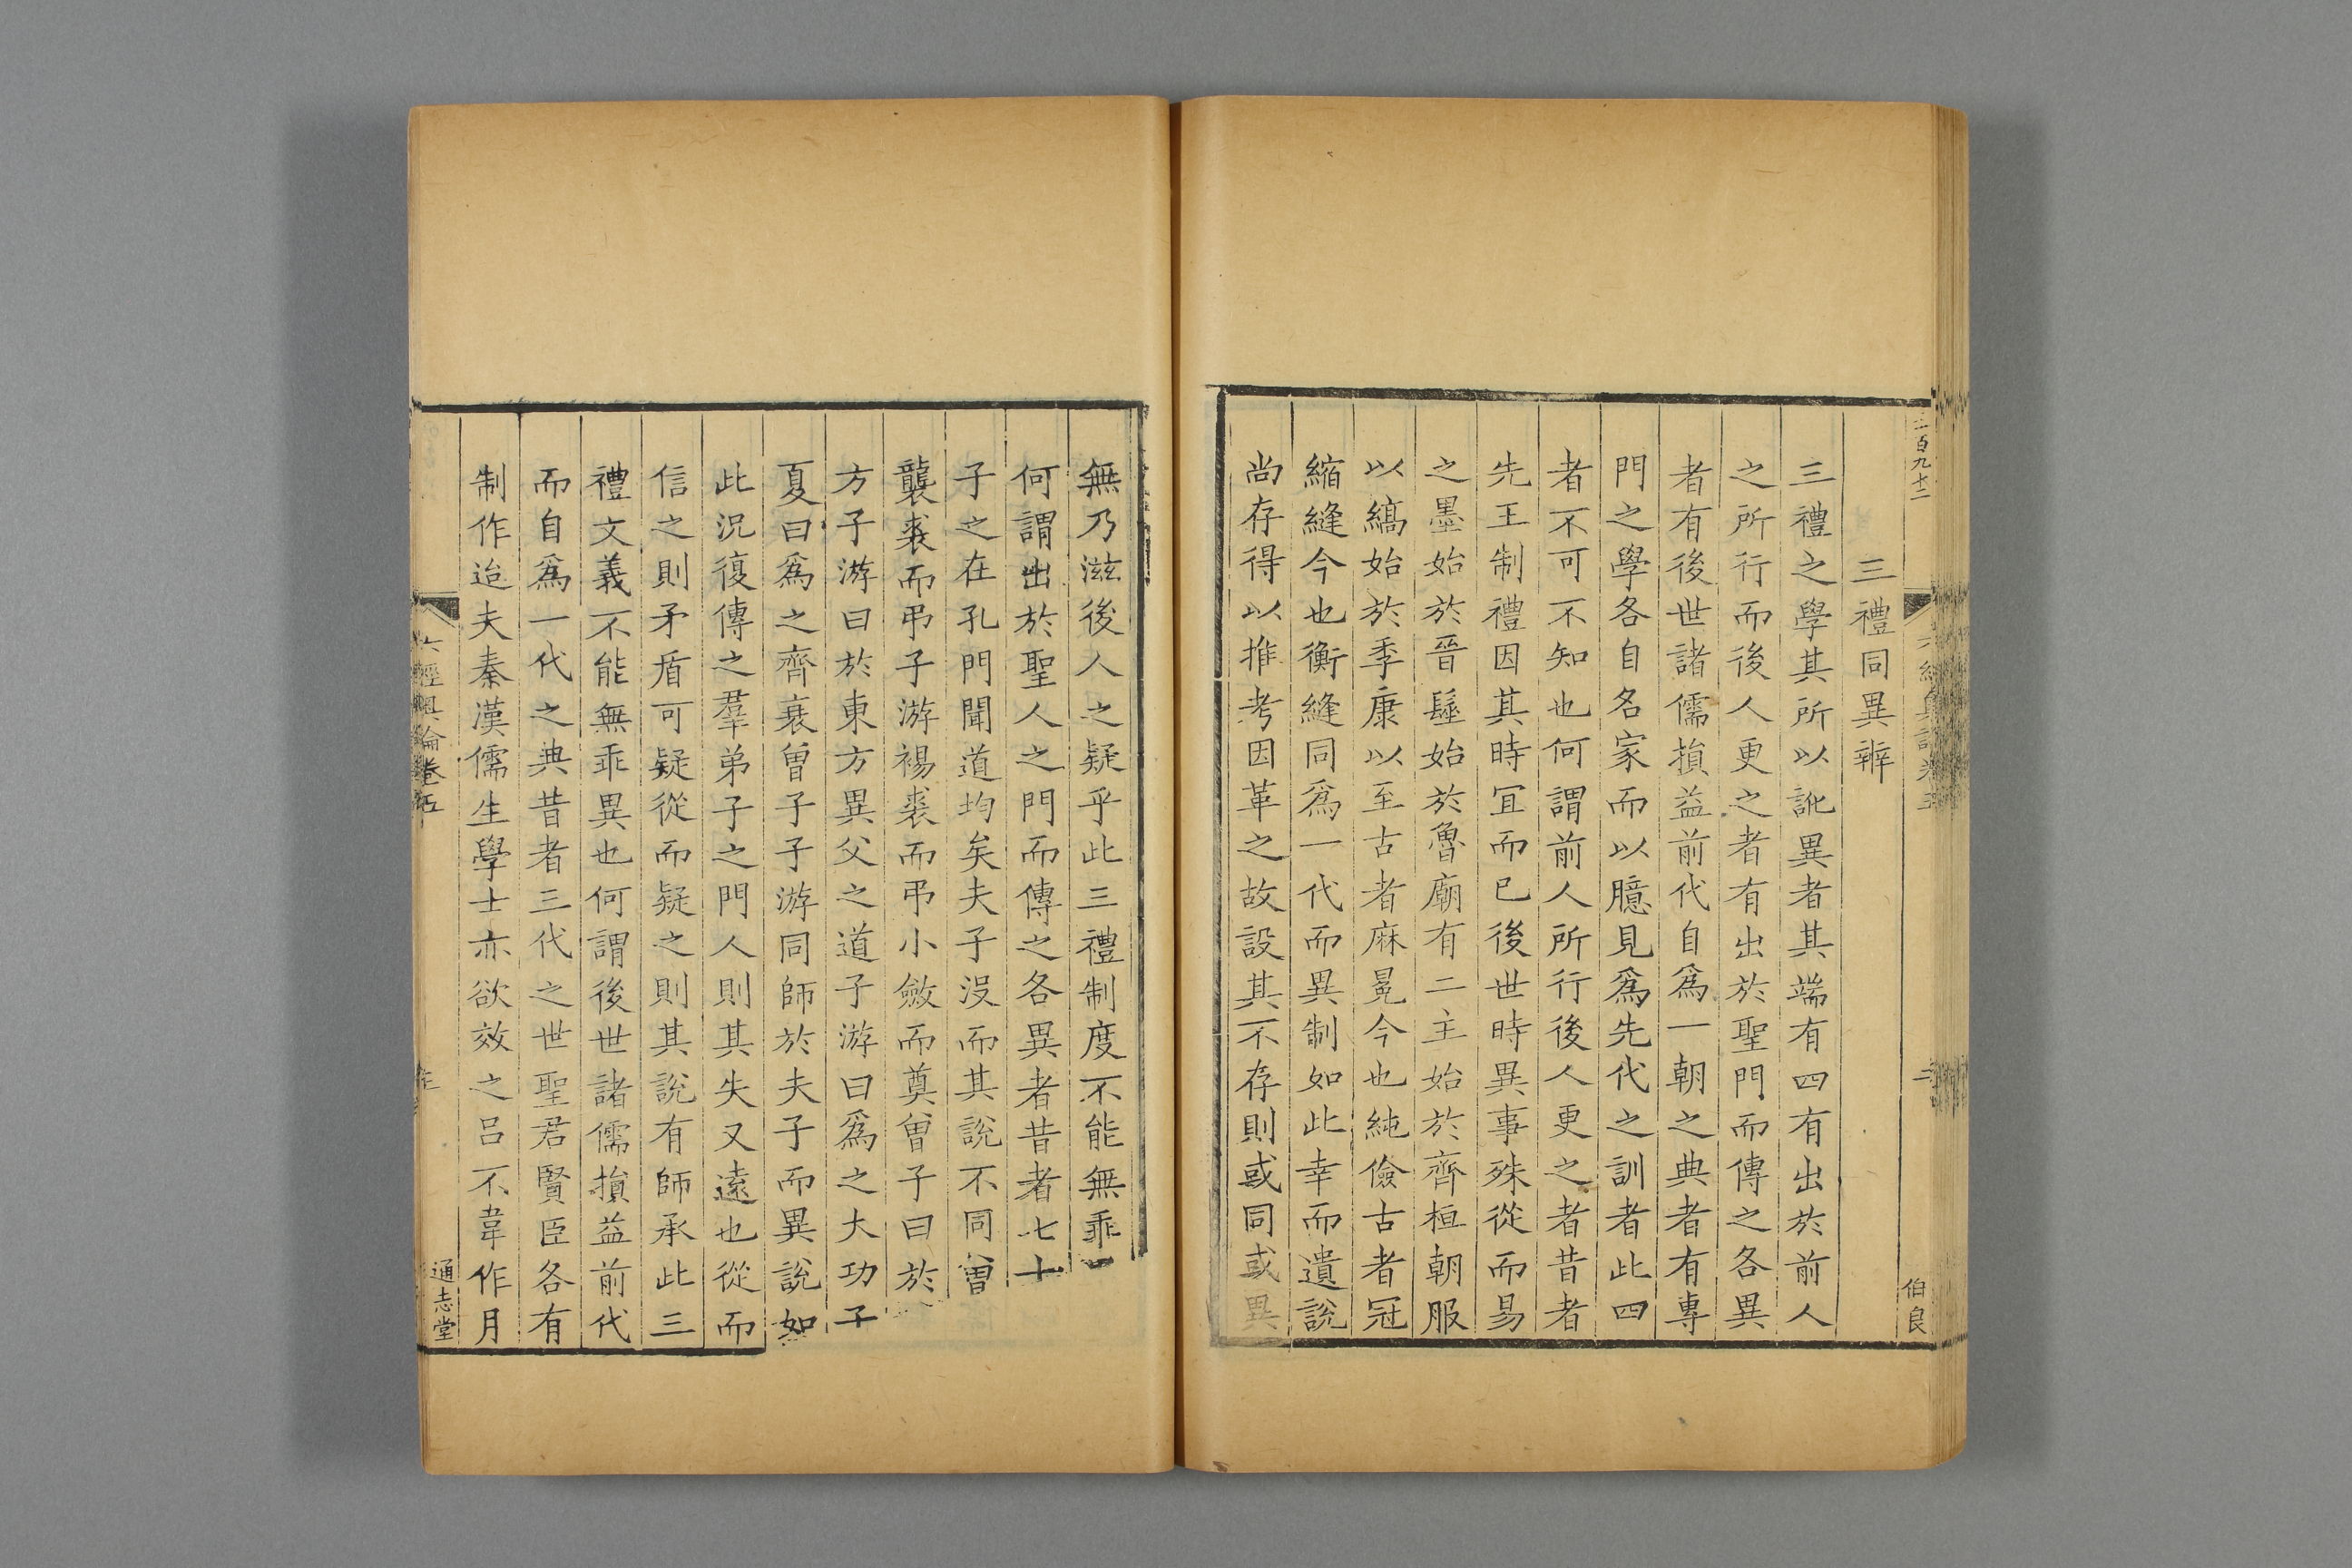 三禮同異辨
三禮之學其所以訛異者其端有四有出於前人
之所行而後人更之者有出於聖門而傳之各異
者有後世諸儒損益前代自爲一朝之典者有專
門之學各自名家而以臆見爲先代之訓者此四
者不可不知也何謂前人所行後人更之者昔者
先王制禮因其時宜而已後世時異事殊從而易
之墨始於晉髽始於魯廟有二主始於齊桓朝服
以縞始於季康以至古者麻冕今也純儉古者冠
縮縫今也衡縫同爲一代而異制如此幸而遺說
尚存得以推考因革之故設其不存則或同或異
無乃滋後人之疑乎此三禮制度不能無乖一
何謂出於聖人之門而傳之各異者昔者七十
子之在孔門聞道均矣夫子沒而其說不同曾
襲裘而弔子游裼裘而弔小斂而奠曾子曰於
方子游曰於東方異父之道子游曰爲之大功子
夏曰爲之齊衰曾子子游同師於夫子而異說如
此況復傳之羣弟子之門人則其失又遠也從而
信之則矛盾可疑從而疑之則其說有師承此三
禮文義不能無乖異也何謂後世諸儒損益前代
而自爲一代之典昔者三代之世聖君賢臣各有
制作迨夫秦漢儒生學士亦欲效之呂不韋作月
六經奧論卷五
通志堂
三百九十二
二
伯良